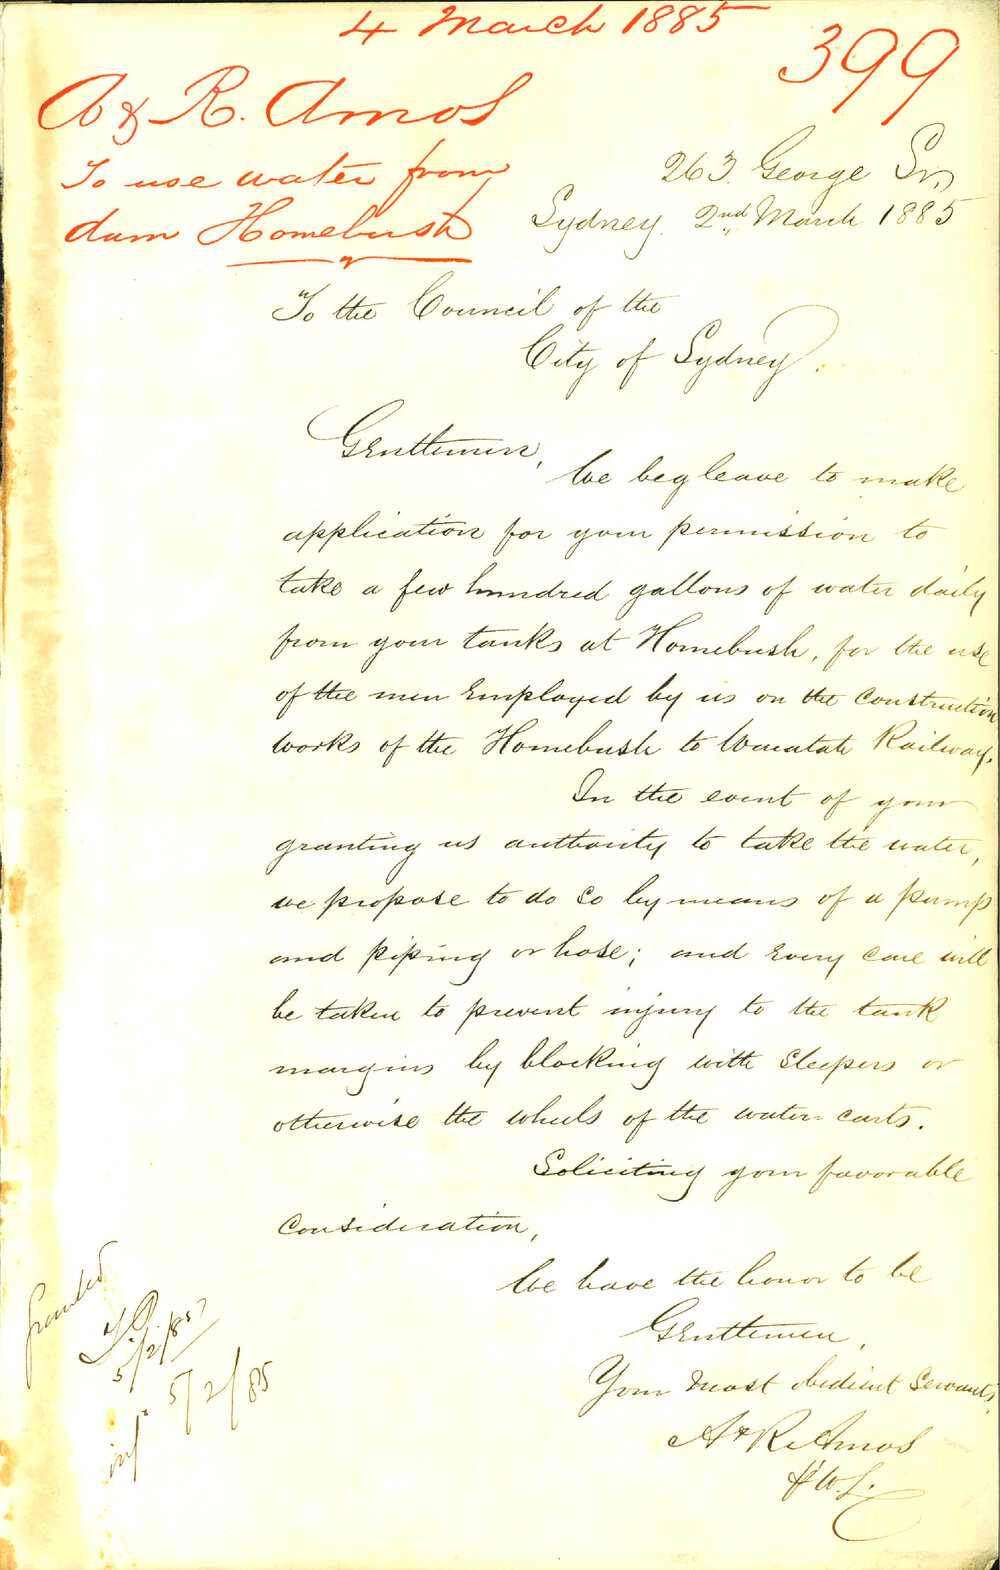 4 March 1885
399
A & R. Amos
To use water from
dam Homebush
263. George St.,
Sydney. 2nd March 1885
To the Council of the
City of Sydney.
Gentlemen,
We beg leave to make
application for your permission to
take a few hundred gallons of water daily
from your tanks at Homebush, for the use
of the men employed by us on the construction
works of the Homebush to Waratah Railway.
In the event of your
granting us authority to take the water,
we propose to do so by means of a pump
and piping or hose; and every care will
be taken to prevent injury to the tank
margins by blocking with sleepers or
otherwise the wheels of the water-carts.
Soliciting your favorable
consideration,
We have the honor to be
Gentlemen,
Your most obedient servants,
A & R. Amos
Granted
5/2/85
inf. 5/2/85